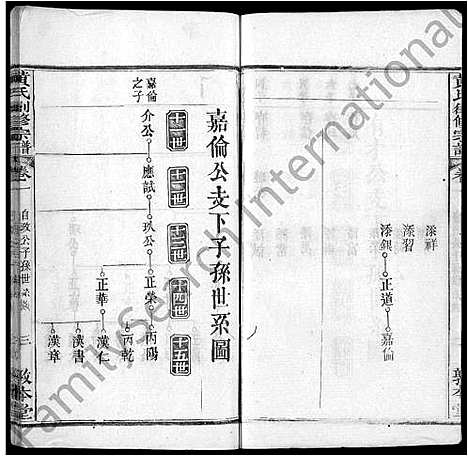 黄氏創修宗譜
卷
添祥
添習
添銀
正道
嘉倫
敦本堂
嘉倫公支下子孫世系圖
十一世
十二世
十三世
十四世
十五世
嘉倫之子
介公
應試
玖公
正榮
丙陽
丙乾
正華
漢仁
漢書
漢章
黄氏創修宗譜
卷一
自政公子孫世系
三
敦本堂
FamilySearch International